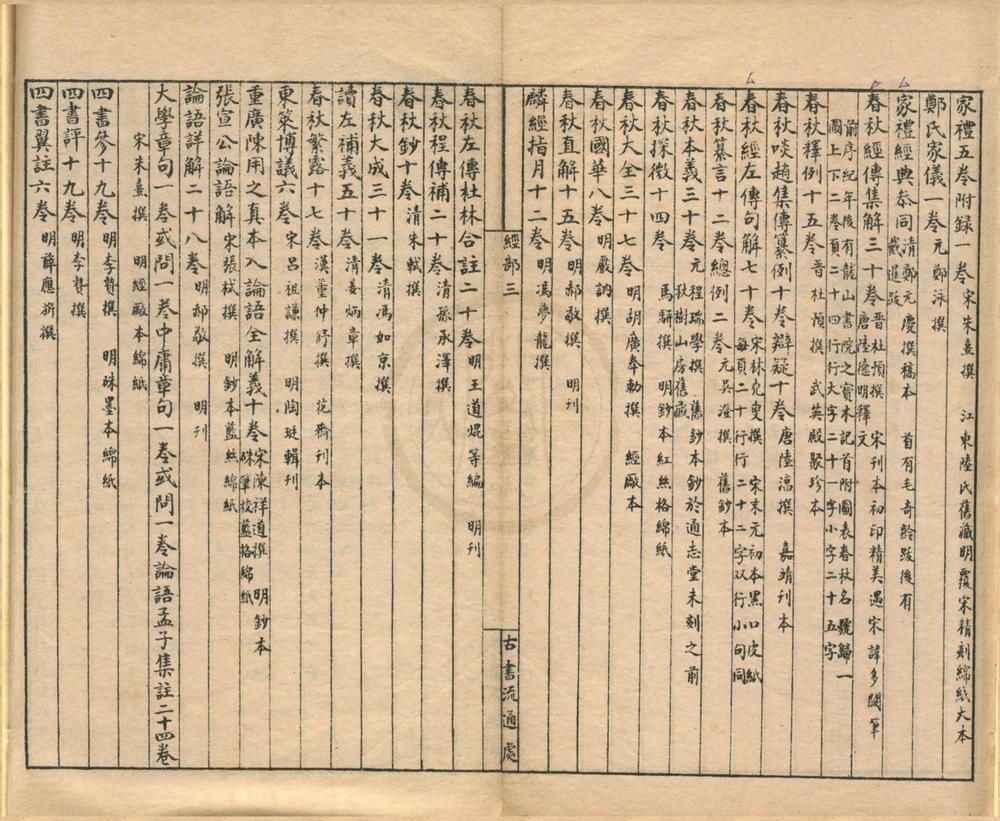 家禮五卷附録一卷 宋朱熹撰 江東陸氏舊藏明覆宋精刻綿紙大本
鄭氏家儀一卷 元鄭泳撰
家禮經典叅同 清鄭元慶撰稿本 首有毛奇齡跋後有
戴暹跋
春秋經傳集解三十卷 晉杜預撰 宋刊本初印精美遇宋諱多闕筆
唐陸德明釋文
前序紀年後有龍山書院之寶木記首附圖表春秋名號歸一
圖上下二卷頁二十四行行大字二十一字小字二十五字
春秋釋例十五卷 晉杜預撰 武英殿聚珍本
春秋啖趙集傳纂例十卷辯疑十卷 唐陸淳撰 嘉靖刊本
春秋經左傳句解七十卷 宋林堯叟撰 宋末元初本黑口皮紙
每頁二十行行二十二字双行小句同
春秋纂言十二卷總例二卷 元吳澄撰 舊鈔本
春秋本義三十卷 元程端學撰 舊鈔本鈔於通志堂未刻之前
秋樹山房舊藏
春秋探微十四卷 馬駢撰 明鈔本紅絲格綿紙
春秋大全三十七卷 明胡廣奉勅撰 經廠本
春秋國華八卷 明嚴訥撰
春秋直解十五卷 明郝敬撰 明刊
麟經指月十二卷 明馮夢龍撰
經部 三
古書流通處
春秋左傳杜林合註二十卷 明王道焜等編 明刊
春秋程傳補二十卷 清孫承澤撰
春秋鈔十卷 清朱軾撰
春秋大成三十一卷 清馮如京撰
讀左補義五十卷 清姜炳章撰
春秋繁露十七卷 漢董仲舒撰 花齋刊本
東萊博議六卷 宋呂祖謙撰 明陶珽輯刊
重廣陳用之真本入論語全解義十卷 宋陳祥道撰 明鈔本
硃筆校藍格綿紙
張宣公論語解 宋張栻撰 明鈔本藍絲綿紙
論語詳解二十八卷 明郝敬撰 明刊
大學章句一卷或問一卷中庸章句一卷或問一卷論語孟子集註二十四卷
宋朱熹撰 明經廠本綿紙
四書參十九卷 明李贄撰 明硃墨本綿紙
四書評十九卷 明李贄撰
四書翼註六卷 明薛應旂撰